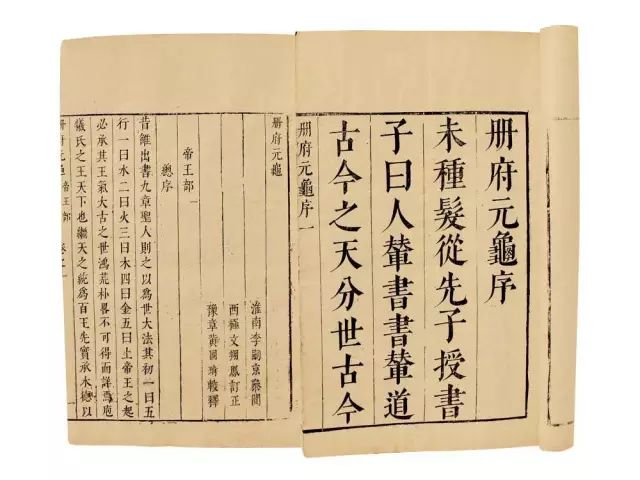 册府元龜序
未種髮從先子授書
子曰人輦書書輦道
古今之天分世古今
册府元龜序 一
册府元龜
淮南李嗣京叅閱
西極文翔鳳訂正
豫章黃國琦較釋
帝王部
總序
昔雒出書九章聖人則之以爲世大法其初一曰五
行一曰水二曰火三曰木四曰金五曰土帝王之起
必承其王氣大古之世鴻荒朴畧不可得而詳焉庖
犧氏之王天下也繼天之統爲百王先實承木德以
册府元龜 帝王部 卷之一